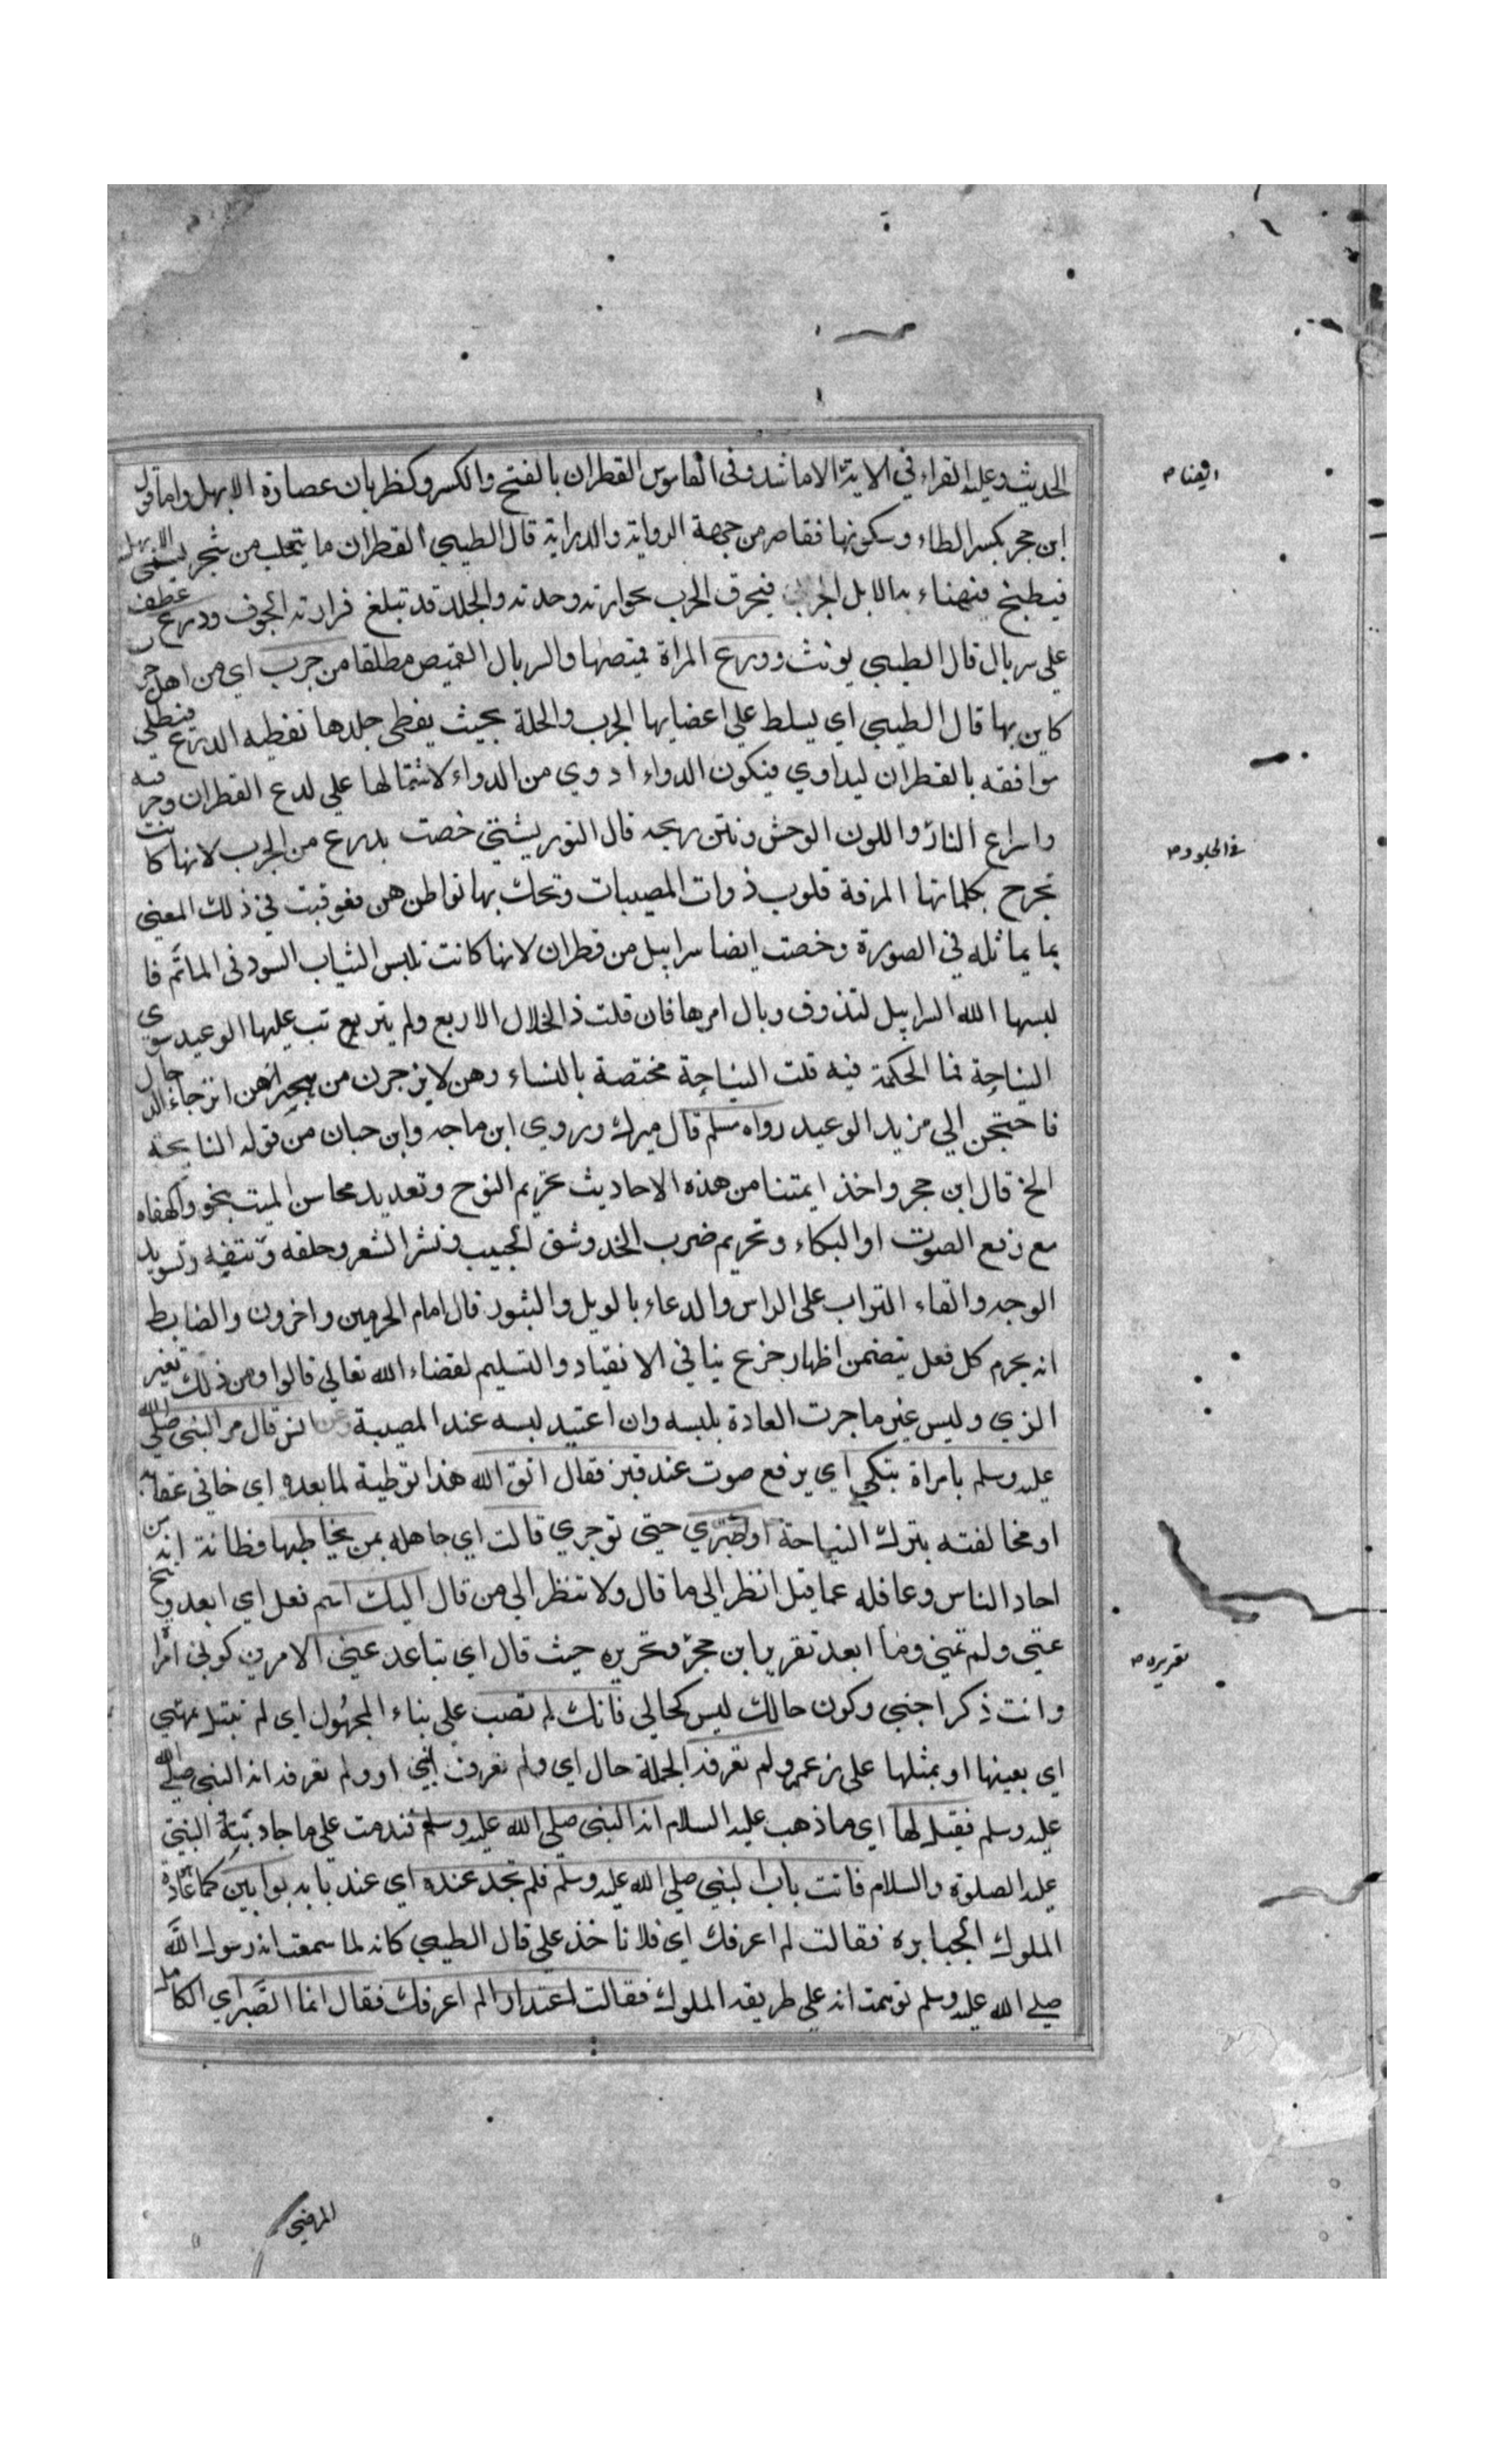 الحديث وعليه القراء في الاية الا ما شذ وفي القاموس القطران بالفتح والكسر وكظربان عصارة الابهل واما قول
ابن حجر بكسر الطاء وسكونها فقاصر من جهة الرواية والدراية قال الطيبي القطران ما يتحلب من شجر يسمى الابهل
فيطبخ فيهناء به الابل الجربى فيحرق الجرب بحرارته وحدته والجلد قد تبلغ حرارته الجوف ودرع عطف
على سربال قال الطيبي يونث ودرع المراة قميصها والسربال القميص مطلقا من جرب اي من اهل جر
كاين بها قال الطيبي اي يسلط على اعضايها الجرب والحكة بحيث يغطى جلدها تغطيه الدرع فيطلى
موافقه بالقطران ليداوي فيكون الدواء ادوي من الداء لاشتمالها على لدع القطران وحرقته
واسراع النار واللون الوحش ونتن ريحه قال التوربشتي خصت بدرع من الجرب لانها كانت
تجرح بكلماتها المرقة قلوب ذوات المصيبات وتحك بها بواطن هن فعوقبت في ذلك المعنى
بما يماثله في الصورة وخصت ايضا سرابيل من قطران لانها كانت تلبس الثياب السود في الماتم فا
لبسها الله السرابيل لتذوق وبال امرها فان قلت ذ الخلال الاربع ولم يترتب عليها الوعيد سوى
النياحة فما الحكمة فيه قلت النياحة مختصة بالنساء وهن لا ينزجرن من هجيراهن انزجار الرجال
فاحتجن الى مزيد الوعيد رواه مسلم قال ميرك وروي ابن ماجه وابن حبان من قوله النايحة
الخ قال ابن حجر واخذ ايمتنا من هذه الاحاديث تحريم النوح وتعديد محاسن الميت بنحو واكهفاه
مع رفع الصوت او البكاء وتحريم ضرب الخد وشق الجيب ونشر الشعر وحلقه ونتفه وتسويد
الوجه والقاء التراب على الراس والدعاء بالويل والثبور قال امام الحرمين واخرون والضابط
انه يحرم كل فعل يتضمن اظهار جزع ينافي الانقياد والتسليم لقضاء الله تعالى قالوا ومن ذلك تغير
الزي وليس غير ما جرت العادة بلبسه وان اعتيد لبسه عند المصيبة وعن انس قال مر النبي صلى الله
عليه وسلم بامراة تبكي اي برفع صوت عند قبر فقال اتق الله هذا توطية لما بعده اي خافي عقابه
او مخالفته بترك النياحة واصبري حتى توجري قالت اي جاهله بمن يخاطبها وظانة انه من
احاد الناس وغافله عما قيل انظر الى ما قال ولا تنظر الى من قال اليك اسم فعل اي ابعد وتنح
عني ولم تمني وما ابعد تقرير ابن حجر وتحريره حيث قال اي تباعد عني الامرين كوني امرا
وانت ذكر اجنبي وكون حالك ليس كحالي فانك لم تصب على بناء المجهول اي لم تبتل بمصيبتي
اي بعينها او بمثلها على زعمه ولم تعرفه الجملة حال اي ولم تعرف انني او ولم تعرفه انه النبي صلى الله
عليه وسلم فقيل لها اي ما ذهب عليه السلام انه النبي صلى الله عليه وسلم فندمت على ما جاوبت به النبي
عليه الصلوة والسلام فاتت باب النبي صلى الله عليه وسلم فلم تجد عنده اي عند بابه بوابين كما عادة
الملوك الجبابره فقالت لم اعرفك اي فلا تاخذ علي قال الطيبي كانه لما سمعت انه رسول الله
صلى الله عليه وسلم توهمت انه على طريقه الملوك فقالت اعتذارا لم اعرفك فقال انما الصبر اي الكامل
ايضا م
في الجلود م
تقريره م
المرضي